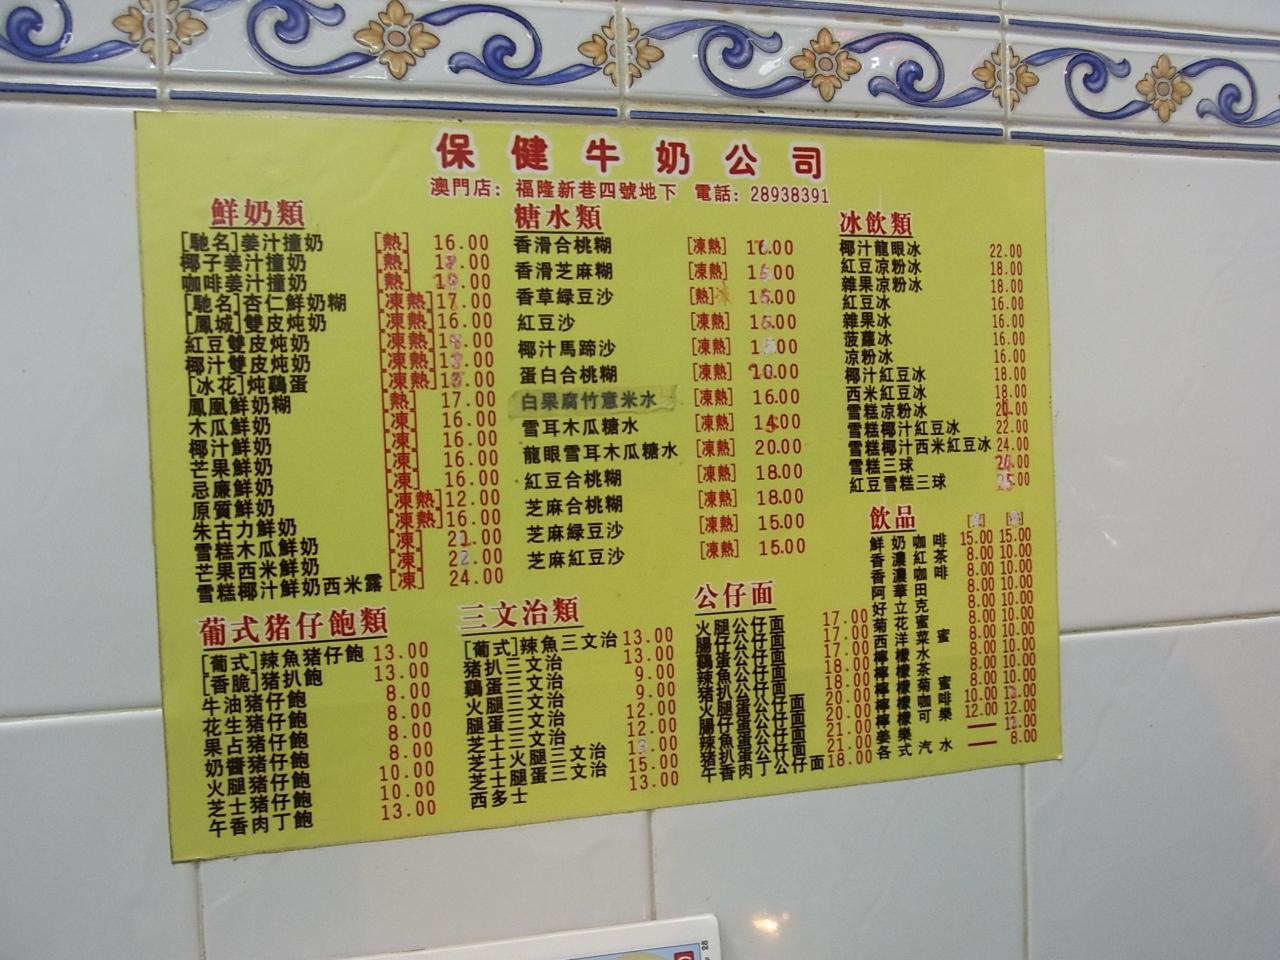 保健牛奶公司
澳門店：福隆新巷四號地下 電話：28938391
鮮奶類
[馳名]姜汁撞奶 [熱] 16.00
椰子姜汁撞奶 [熱]
咖啡姜汁撞奶 [熱]
[馳名]杏仁鮮奶糊 [凍熱] 17.00
[鳳城]雙皮炖奶 [凍熱] 16.00
紅豆雙皮炖奶 [凍熱]
椰汁雙皮炖奶 [凍熱]
[冰花]炖鷄蛋 [凍熱]
鳳凰鮮奶糊 [熱] 17.00
木瓜鮮奶 [凍] 16.00
椰汁鮮奶 [凍] 16.00
芒果鮮奶 [凍] 16.00
忌廉鮮奶 [凍] 16.00
原質鮮奶 [凍熱] 12.00
朱古力鮮奶 [凍熱] 16.00
雪糕木瓜鮮奶 [凍]
芒果西米鮮奶 [凍]
雪糕椰汁鮮奶西米露 [凍] 24.00
糖水類
香滑合桃糊 [凍熱]
香滑芝麻糊 [凍熱]
香草綠豆沙 [熱]
紅豆沙 [凍熱]
椰汁馬蹄沙 [凍熱]
蛋白合桃糊 [凍熱]
白果腐竹薏米水 [凍熱] 16.00
雪耳木瓜糖水 [凍熱]
龍眼雪耳木瓜糖水 [凍熱] 20.00
紅豆合桃糊 [凍熱] 18.00
芝麻合桃糊 [凍熱] 18.00
芝麻綠豆沙 [凍熱] 15.00
芝麻紅豆沙 [凍熱] 15.00
冰飲類
椰汁龍眼冰 22.00
紅豆凉粉冰 18.00
雜果凉粉冰 18.00
紅豆冰 16.00
雜果冰 16.00
菠蘿冰 16.00
凉粉冰 16.00
椰汁紅豆冰 18.00
西米紅豆冰 18.00
雪糕凉粉冰
雪糕椰汁紅豆冰 22.00
雪糕椰汁西米紅豆冰 24.00
雪糕三球
紅豆雪糕三球
葡式猪仔飽類
[葡式]辣魚猪仔飽 13.00
[香脆]猪扒飽 13.00
牛油猪仔飽 8.00
花生猪仔飽 8.00
果占猪仔飽 8.00
奶醬猪仔飽 8.00
火腿猪仔飽 10.00
芝士猪仔飽 10.00
午香肉丁飽 13.00
三文治類
[葡式]辣魚三文治 13.00
猪扒三文治 13.00
鷄蛋三文治 9.00
火腿三文治 9.00
腿蛋三文治 12.00
芝士三文治 12.00
芝士火腿三文治
芝士腿蛋三文治 15.00
西多士 13.00
公仔面
火腿公仔面 17.00
腸仔公仔面 17.00
鷄蛋公仔面 17.00
辣魚公仔面 18.00
猪扒公仔面 18.00
火腿蛋公仔面 20.00
腸仔蛋公仔面 20.00
辣魚蛋公仔面 21.00
猪扒蛋公仔面 21.00
午香肉丁公仔面 18.00
飲品
鮮奶咖啡 15.00 15.00
香濃紅茶 8.00 10.00
香濃咖啡 8.00 10.00
阿華田 8.00 10.00
好立克 8.00 10.00
菊花蜜 8.00 10.00
西洋菜蜜 8.00 10.00
檸檬水 8.00 10.00
檸檬茶 8.00 10.00
檸檬菊蜜 10.00
檸檬咖啡 12.00 12.00
檸檬可樂
姜樂
各式汽水 8.00